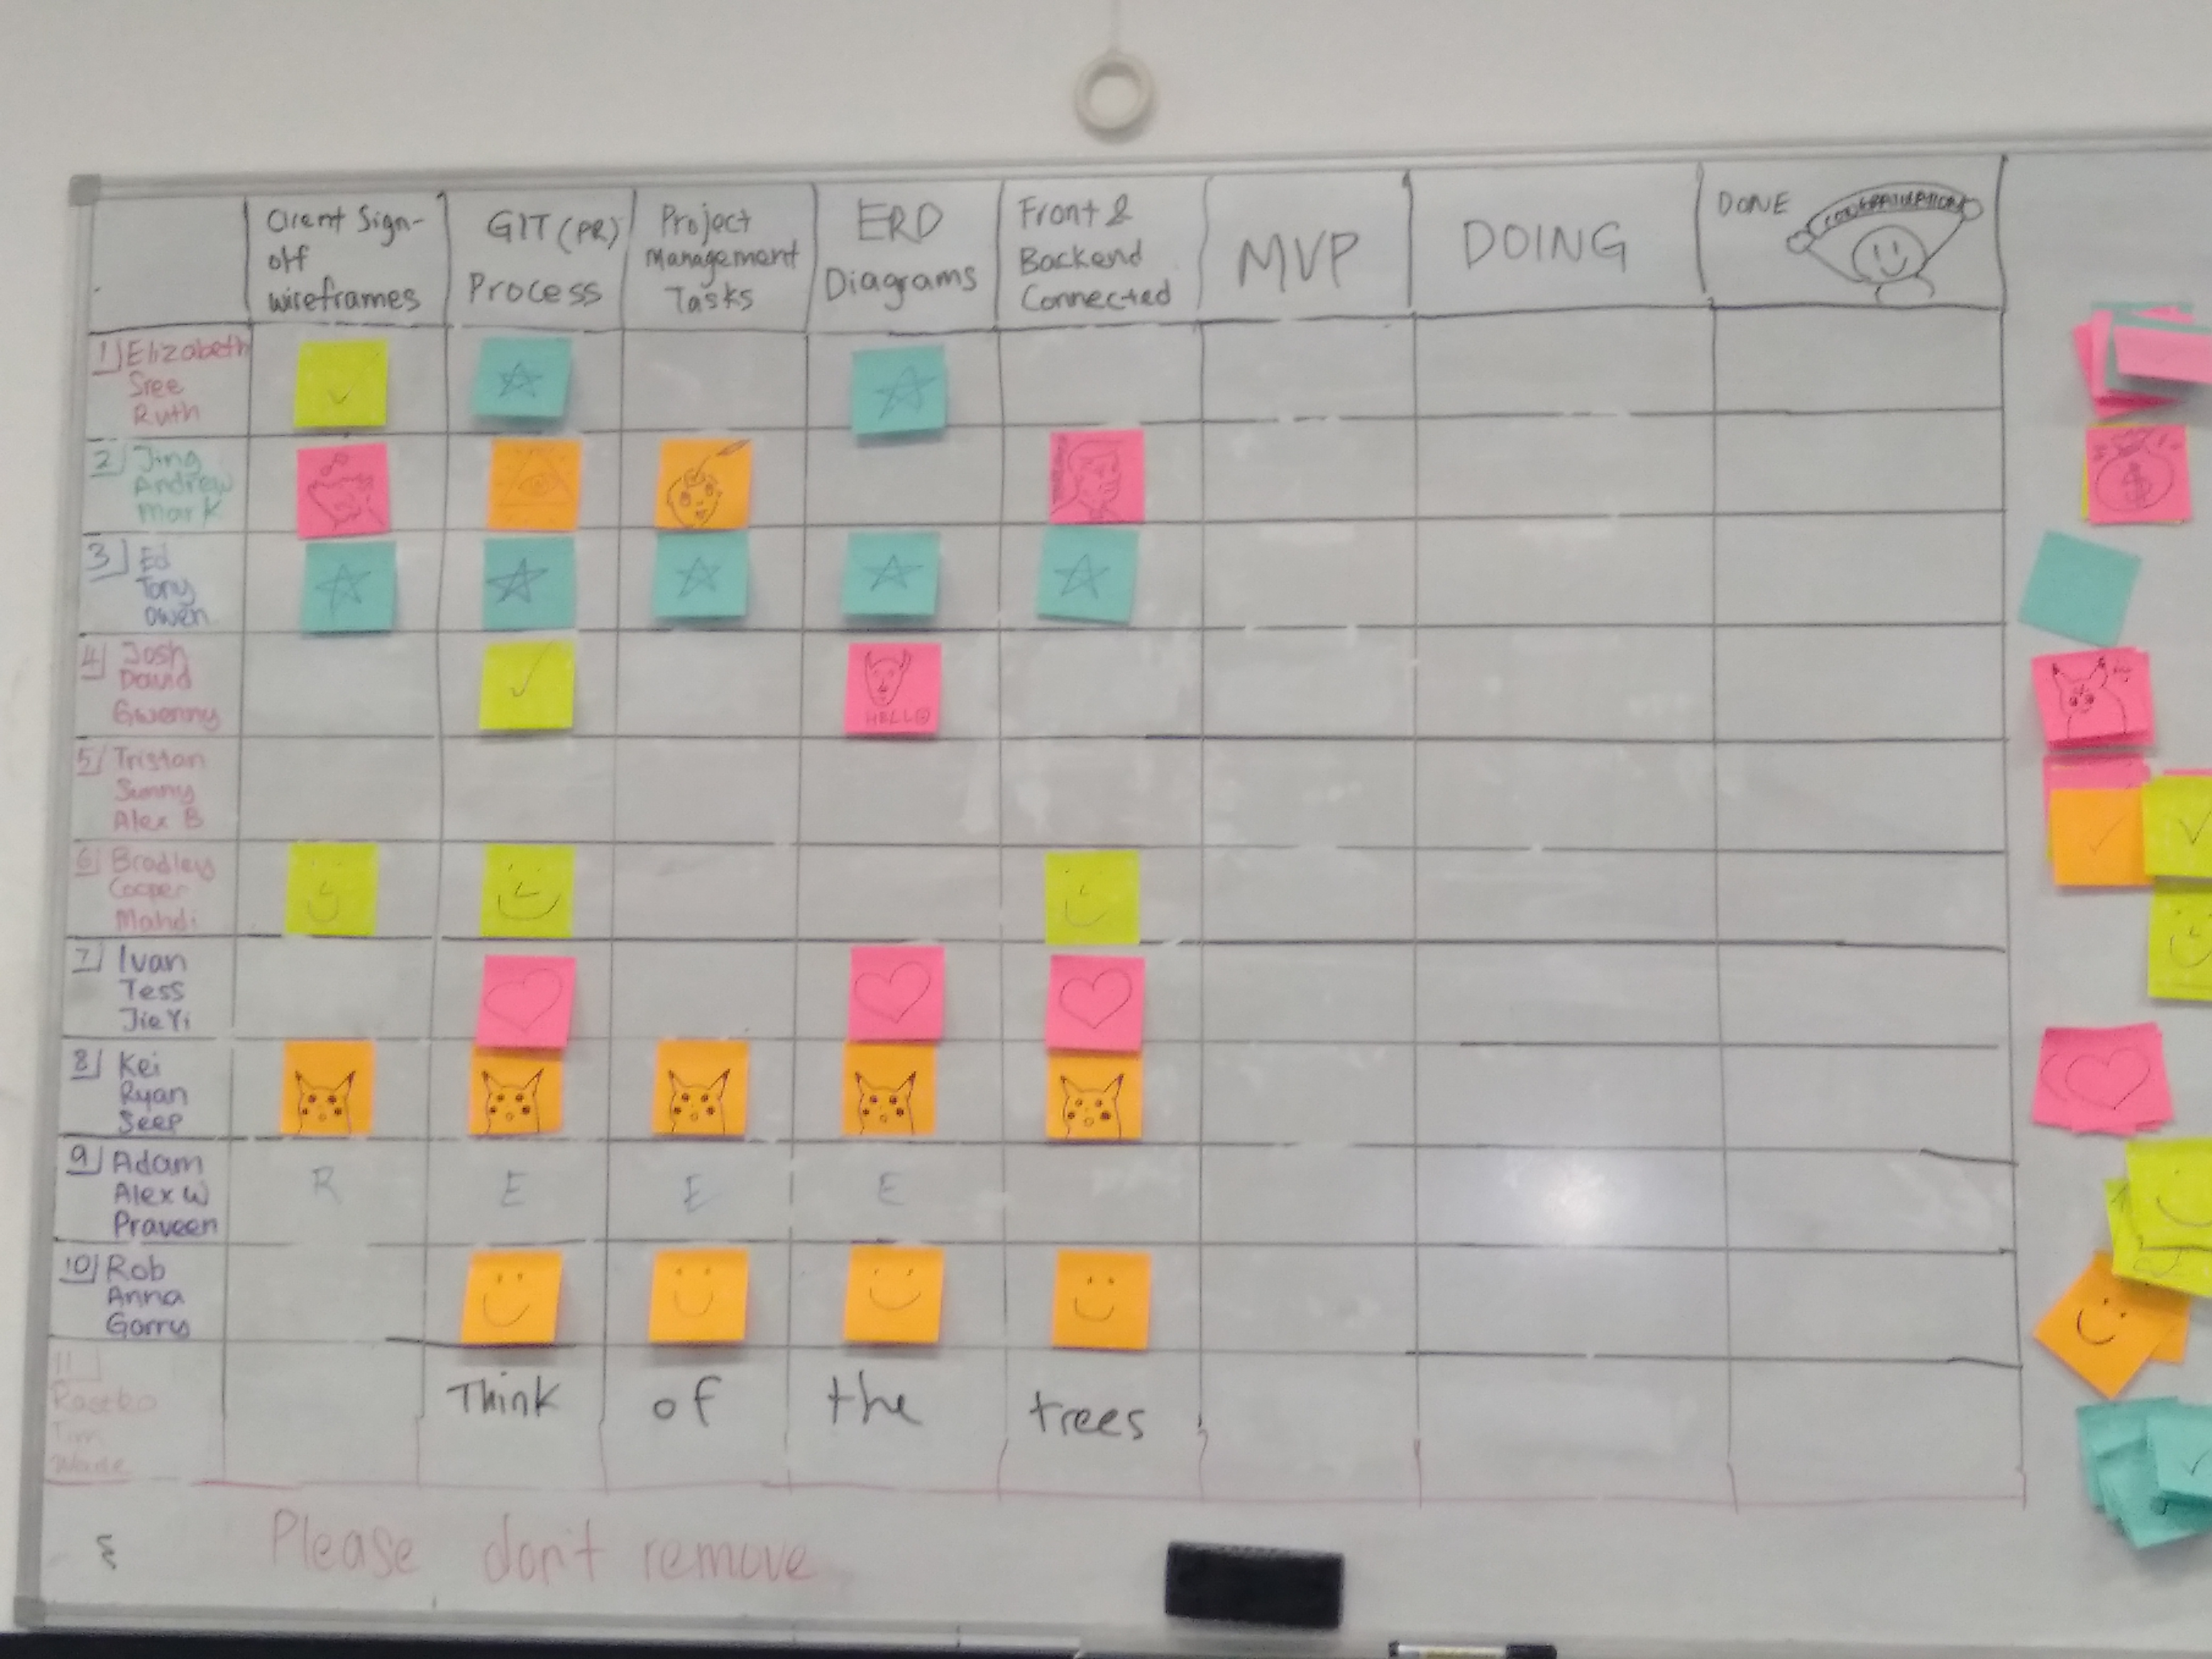 Client Sign-
off
wireframes
GIT (PR)
Process
Project
Management
Tasks
ERD
Diagrams
Front &
Backend
Connected
MVP
DOING
DONE
CONGRATULATIONS
1 Elizabeth
Sree
Ruth
2 Jing
Andrew
Mark
3 Ed
Tony
Owen
4 Josh
David
Gwenny
HELLO
5 Tristan
Sunny
Alex B
6 Bradley
Cooper
Mahdi
7 Ivan
Tess
JieYi
8 Kei
Ryan
Seep
9 Adam
Alex W
Praveen
R E E E
10 Rob
Anna
Garry
11
Rastko
Tim
Wade
Think of the trees
Please don't remove
$